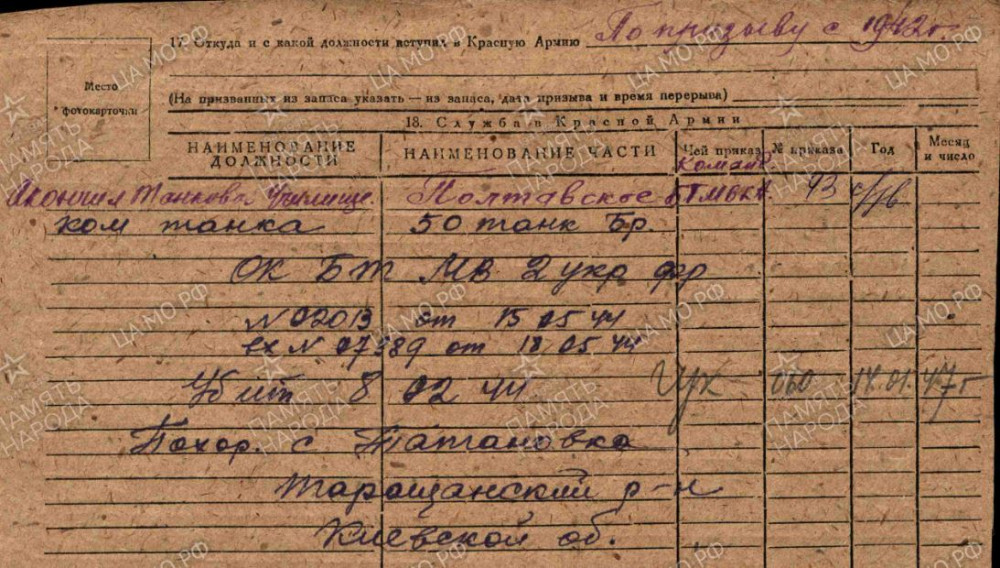 17. Откуда и с какой должности вступил в Красную Армию По призыву с 1942 г.
Место фотокарточки
(На призванных из запаса указать — из запаса, дата призыва и время перерыва)
18. Служба в Красной Армии
НАИМЕНОВАНИЕ ДОЛЖНОСТИ НАИМЕНОВАНИЕ ЧАСТИ Чей приказ № приказа Год Месяц и число
Команд.
Училище Полтавское БТМВКА 93
ком танка 50 танк Бр.
ОК БТ МВ 2 укр фр
N 02013 от 15 05 44
вх N 07389 от 18 05 44
Убит 8 02 44 ГУК 060 14.01.47 г
Похор. с Татановка
Таращанский р-н
Киевской об.
ЦА МО РФ
ПАМЯТЬ НАРОДА